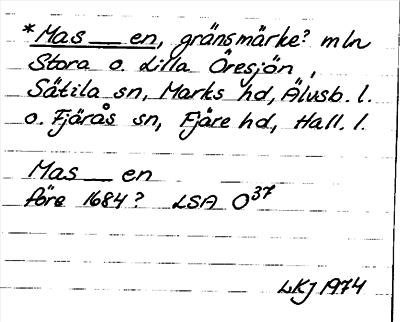 *Mas__en, gränsmärke? mln
Stora o. Lilla Öresjön,
Sätila sn, Marks hd, Älvsb. l.
o. Fjärås sn, Fjäre hd, Hall. l.
Mas__en
före 1684? LSA O37
LKJ 1974